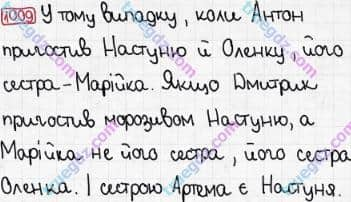 1009 У тому випадку, коли Антон
пригостив Настуню й Оленку, його
сестра - Марійка. Якщо Дмитрик
пригостив морозивом Настуню, а
Марійка не його сестра, його сестра
Оленка. І сестрою Артема є Настуня.